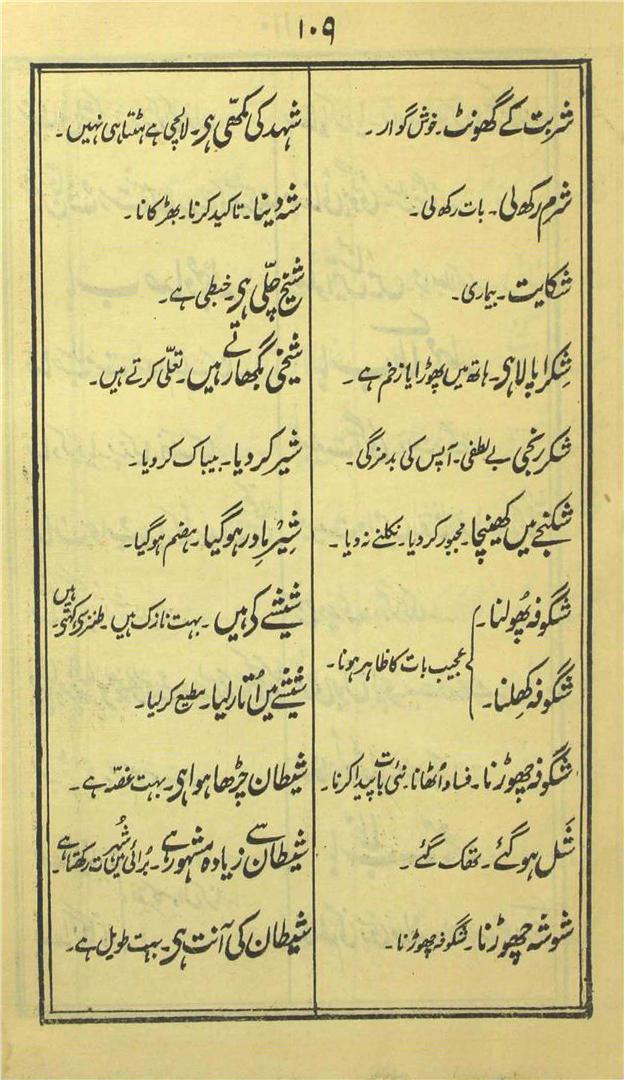 ۱۰۹
شربت کے گھونٹ۔ خوش گوار۔
شرم رکھ لی۔ بات رکھ لی۔
شکایت۔ بیماری۔
شِکرا پالا ہی۔ ہاتھ میں پھوڑا یا زخم ہے۔
شکر رنجی بے لطفی۔ آپس کی بدمزگی۔
شکنجے میں کھینچا۔ مجبور کر دیا۔ نکلنے نہ دیا۔
شگوفہ پھُولنا۔
شگوفہ کھِلنا۔
عجیب بات کا ظاہر ہونا۔
شگوفہ چھوڑنا۔ فساد اُٹھانا۔ نئی بات پیدا کرنا۔
شَل ہو گئے۔ تھک گئے۔
شوشہ چھوڑنا۔ شگوفہ چھوڑنا۔
شہد کی مکھّی ہی۔ لالچی ہے ہٹتا ہی نہیں۔
شہ دینا۔ تاکید کرنا۔ بھڑکانا۔
شیخ چلّی ہی۔ خبطی ہے۔
شیخی بگھارتے ہیں۔ تعلّی کرتے ہیں۔
شیر کر دیا۔ بیباک کر دیا۔
شِیرِ مادر ہو گیا۔ ہضم ہو گیا۔
شیشے کی ہیں۔ بہت نازک ہیں۔ طنزً کہتے ہیں۔
شیشے میں اُتار لیا۔ مطیع کر لیا۔
شیطان چڑھا ہوا ہی۔ بہت غصّہ ہے۔
شیطان سے زیادہ مشہور ہے۔ بُرائی میں شُہرت رکھتا ہے۔
شیطان کی آنت ہی۔ بہت طویل ہے۔